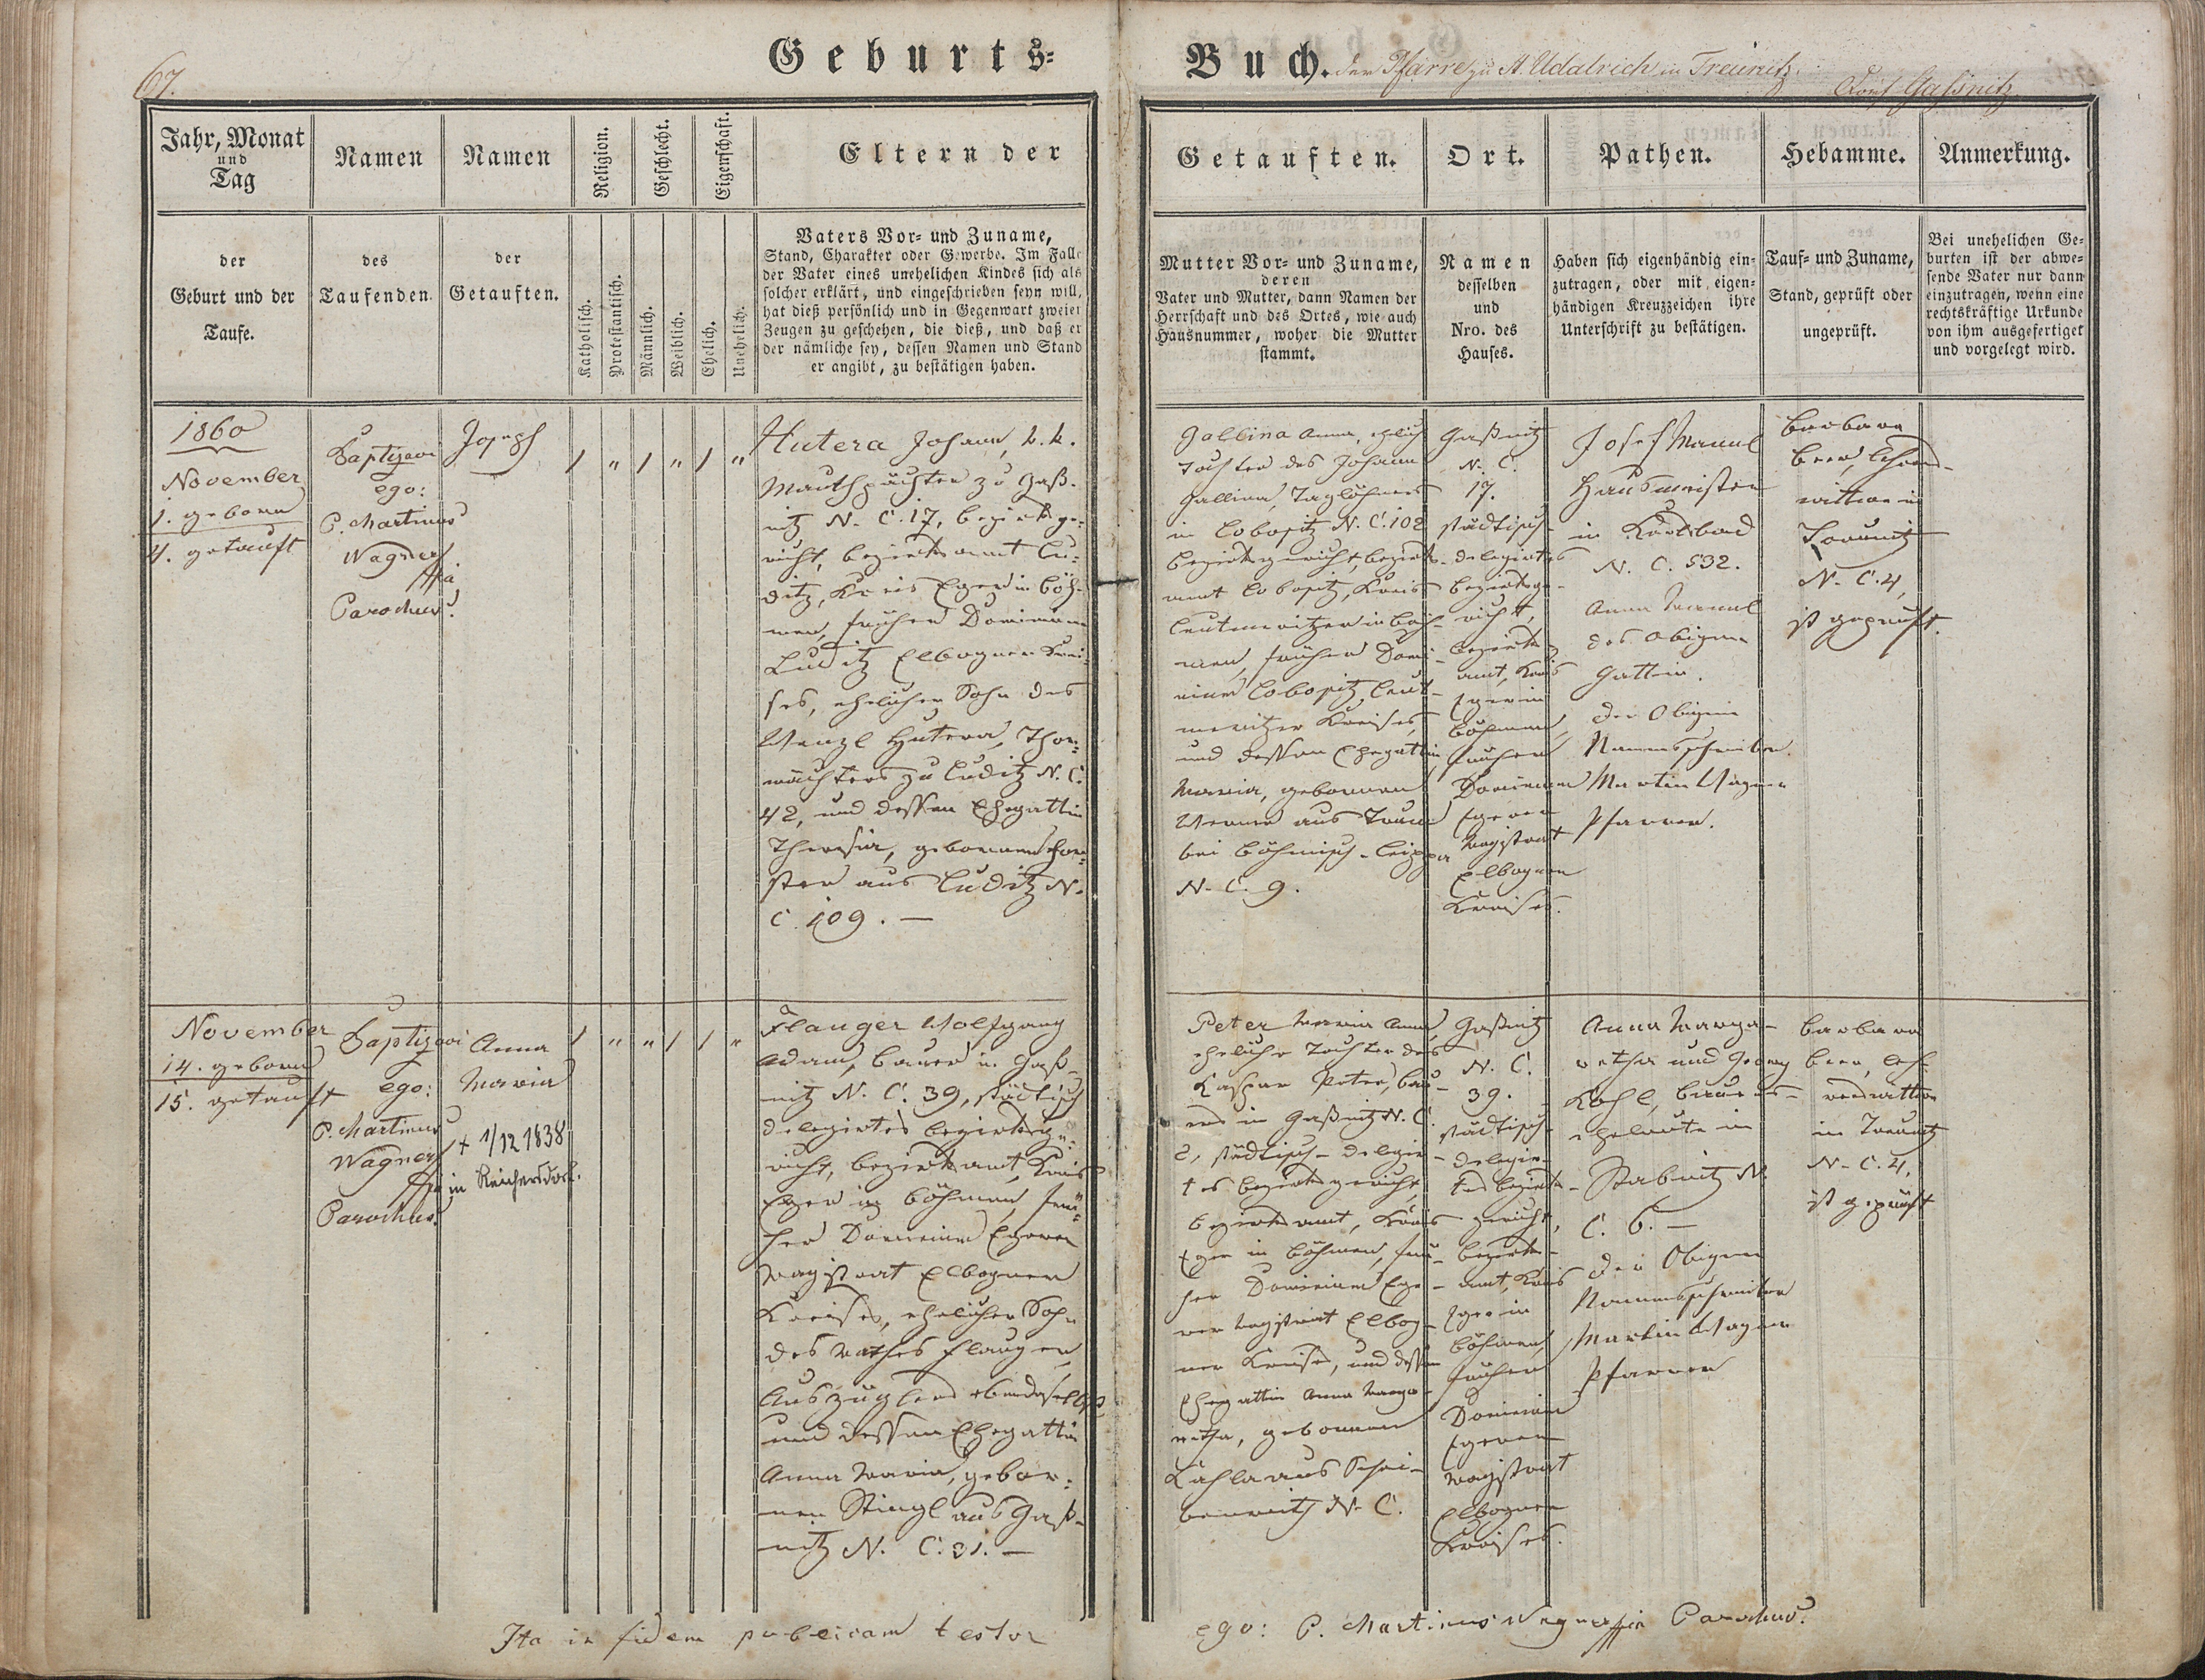 67.
Geburts=
Buch. der Pfarre zu St. Udalrich in Treunitz.
Dorf Gaßnitz
Jahr, Monat
und
Tag
der
Geburt und der
Taufe.
Namen
des
Taufenden.
Namen
der
Getauften.
Religion.
Katholisch.
Protestantisch.
Geschlecht.
Männlich.
Weiblich.
Eigenschaft.
Ehelich.
Unehelich.
Eltern der
Vaters Vor= und Zuname,
Stand, Charakter oder Gewerbe. Im Falle
der Vater eines unehelichen Kindes sich als
solcher erklärt, und eingeschrieben seyn will,
hat dieß persönlich und in Gegenwart zweier
Zeugen zu geschehen, die dieß, und daß er
der nämliche sey, dessen Namen und Stand
er angibt, zu bestätigen haben.
Getauften.
Mutter Vor= und Zuname,
deren
Vater und Mutter, dann Namen der
Herrschaft und des Ortes, wie auch
Hausnummer, woher die Mutter
stammt.
Ort.
Namen
desselben
und
Nro. des
Hauses.
Pathen.
Haben sich eigenhändig ein=
zutragen, oder mit eigen=
händigen Kreuzzeichen ihre
Unterschrift zu bestätigen.
Hebamme.
Tauf= und Zuname,
Stand, geprüft oder
ungeprüft.
Anmerkung.
Bei unehelichen Ge=
burten ist der abwe=
sende Vater nur dann
einzutragen, wenn eine
rechtskräftige Urkunde
von ihm ausgefertiget
und vorgelegt wird.
1860
November
1. geboren
4. getauft
Baptizavi
ego:
P. Martinus
Wagner
Parochus.
Joseph
/ " / " / "
Hutera Johann, k. k.
Mauthpächter zu Gaß-
nitz N. C. 17, Bezirksge=
richt, Bezirksamt Lu=
ditz, Kreis Eger in Böh-
men, früher Dominium
Luditz Elbogner Krei-
ses, ehelicher Sohn des
Wenzl Hutera, Thor=
wächters zu Luditz N. C.
42, und dessen Ehegattin
Theresia, gebornen
aus Luditz N.
C. 109. —
Gallina Anna, ehlich
Tochter des Johann
Gallina, Taglöhners
in Lobositz N. C. 102
Bezirksgericht, Bezirks-
amt Lobositz, Kreis
Leutmeritzer in Böh-
men, früher Domi-
nium Lobositz Leut-
meritzer Kreises,
und dessen Ehegattin
Maria, gebornen
Werner aus
bei Böhmisch-Leippa
N. C. 9.
Gaßnitz
N. C.
17.
städtisch-
delegirtes
Bezirksge-
richt,
Bezirks
amt, Kreis
Eger in
Böhmen,
früher
Dominium
Egerer
Magistrat
Elbogner
Kreises.
Josef Mannl
Hausmeister
in Karlsbad
N. C. 532.
Anna Mannl
des Obigen
Gattin.
Der Obigen
Namensschreiber.
Martin Wagner
Pfarrer.
Barbara
Beer,
wittwe in
Treunitz
N. C. 4,
ist geprüft.
November
14. geboren
15. getauft
Baptizavi
ego:
P. Martinus
Wagner
Parochus.
Anna
Maria
+ 1/12 1838
in Reichersdorf.
/ " " / / "
Flauger Wolfgang
Adam, Bauer in Gaß-
nitz N. C. 39, städtisch
delegirtes Bezirksge=
richt, Bezirksamt, Kreis
Eger in Böhmen, frü=
her Dominium Egerer
Magistrat Elbogner
Kreises, ehelicher Sohn
des Mathes Flauger,
Auszüglers ebendaselbst
und dessen Ehegattin
Anna Maria, gebor=
nen Stingl aus Gaß-
nitz N. C. 31. —
Peter Maria Anna,
eheliche Tochter des
Kaspar Peter, Bau-
ers in Gaßnitz N. C.
2, städtisch-delegir-
tes Bezirksgericht,
Bezirksamt, Kreis
Eger in Böhmen, frü-
her Dominium Ege-
rer Magistrat Elbog-
ner Kreises, und dessen
Ehegattin Anna Marga-
retha, gebornen
aus
N. C.
Gaßnitz
N. C.
39.
städtisch-
delegir-
tes Bezirks-
gericht,
Bezirks-
amt, Kreis
Eger in
Böhmen,
früher
Dominium
Egerer
Magistrat
Elbogner
Kreises.
Anna Marga-
retha und Georg
Kohl, Bauers-
eheleute in
Stabnitz N.
C. 6. —
Der Obigen
Namensschreiber
Martin Wagner
Pfarrer
Barbara
Beer,
wittwe
in Treunitz
N. C. 4,
ist geprüft
Ita in fidem publicam testor
ego: P. Martinus Wagner Parochus.